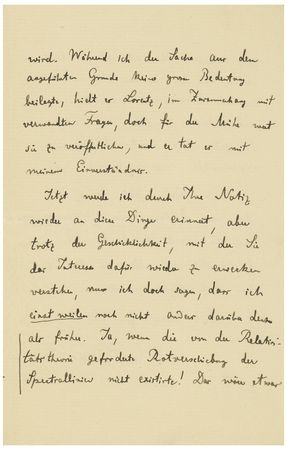 wird. Während ich der Sache aus dem
angeführten Grunde keine gross Bedeutung
beilegte, hielt er Lorentz, im Zusammenhang mit
verwandten Fragen, doch für der Mühe wert
sie zu veröffentlichen, und er tat es mit
meinem Einverständnis.
Jetzt werde ich durch Ihre Notiz
wieder an diese Dinge erinnert, aber
trotz der Geschicklichkeit, mit der Sie
das Interesse dafür wieder zu erwecken
verstehen, muss ich doch sagen, dass ich
einstweilen noch nicht anders darüber denke
als früher. Ja, wenn die von der Relativi-
tätstheorie geforderte Rotverschiebung der
Spectrallinien nicht existirte! Das wäre etwas